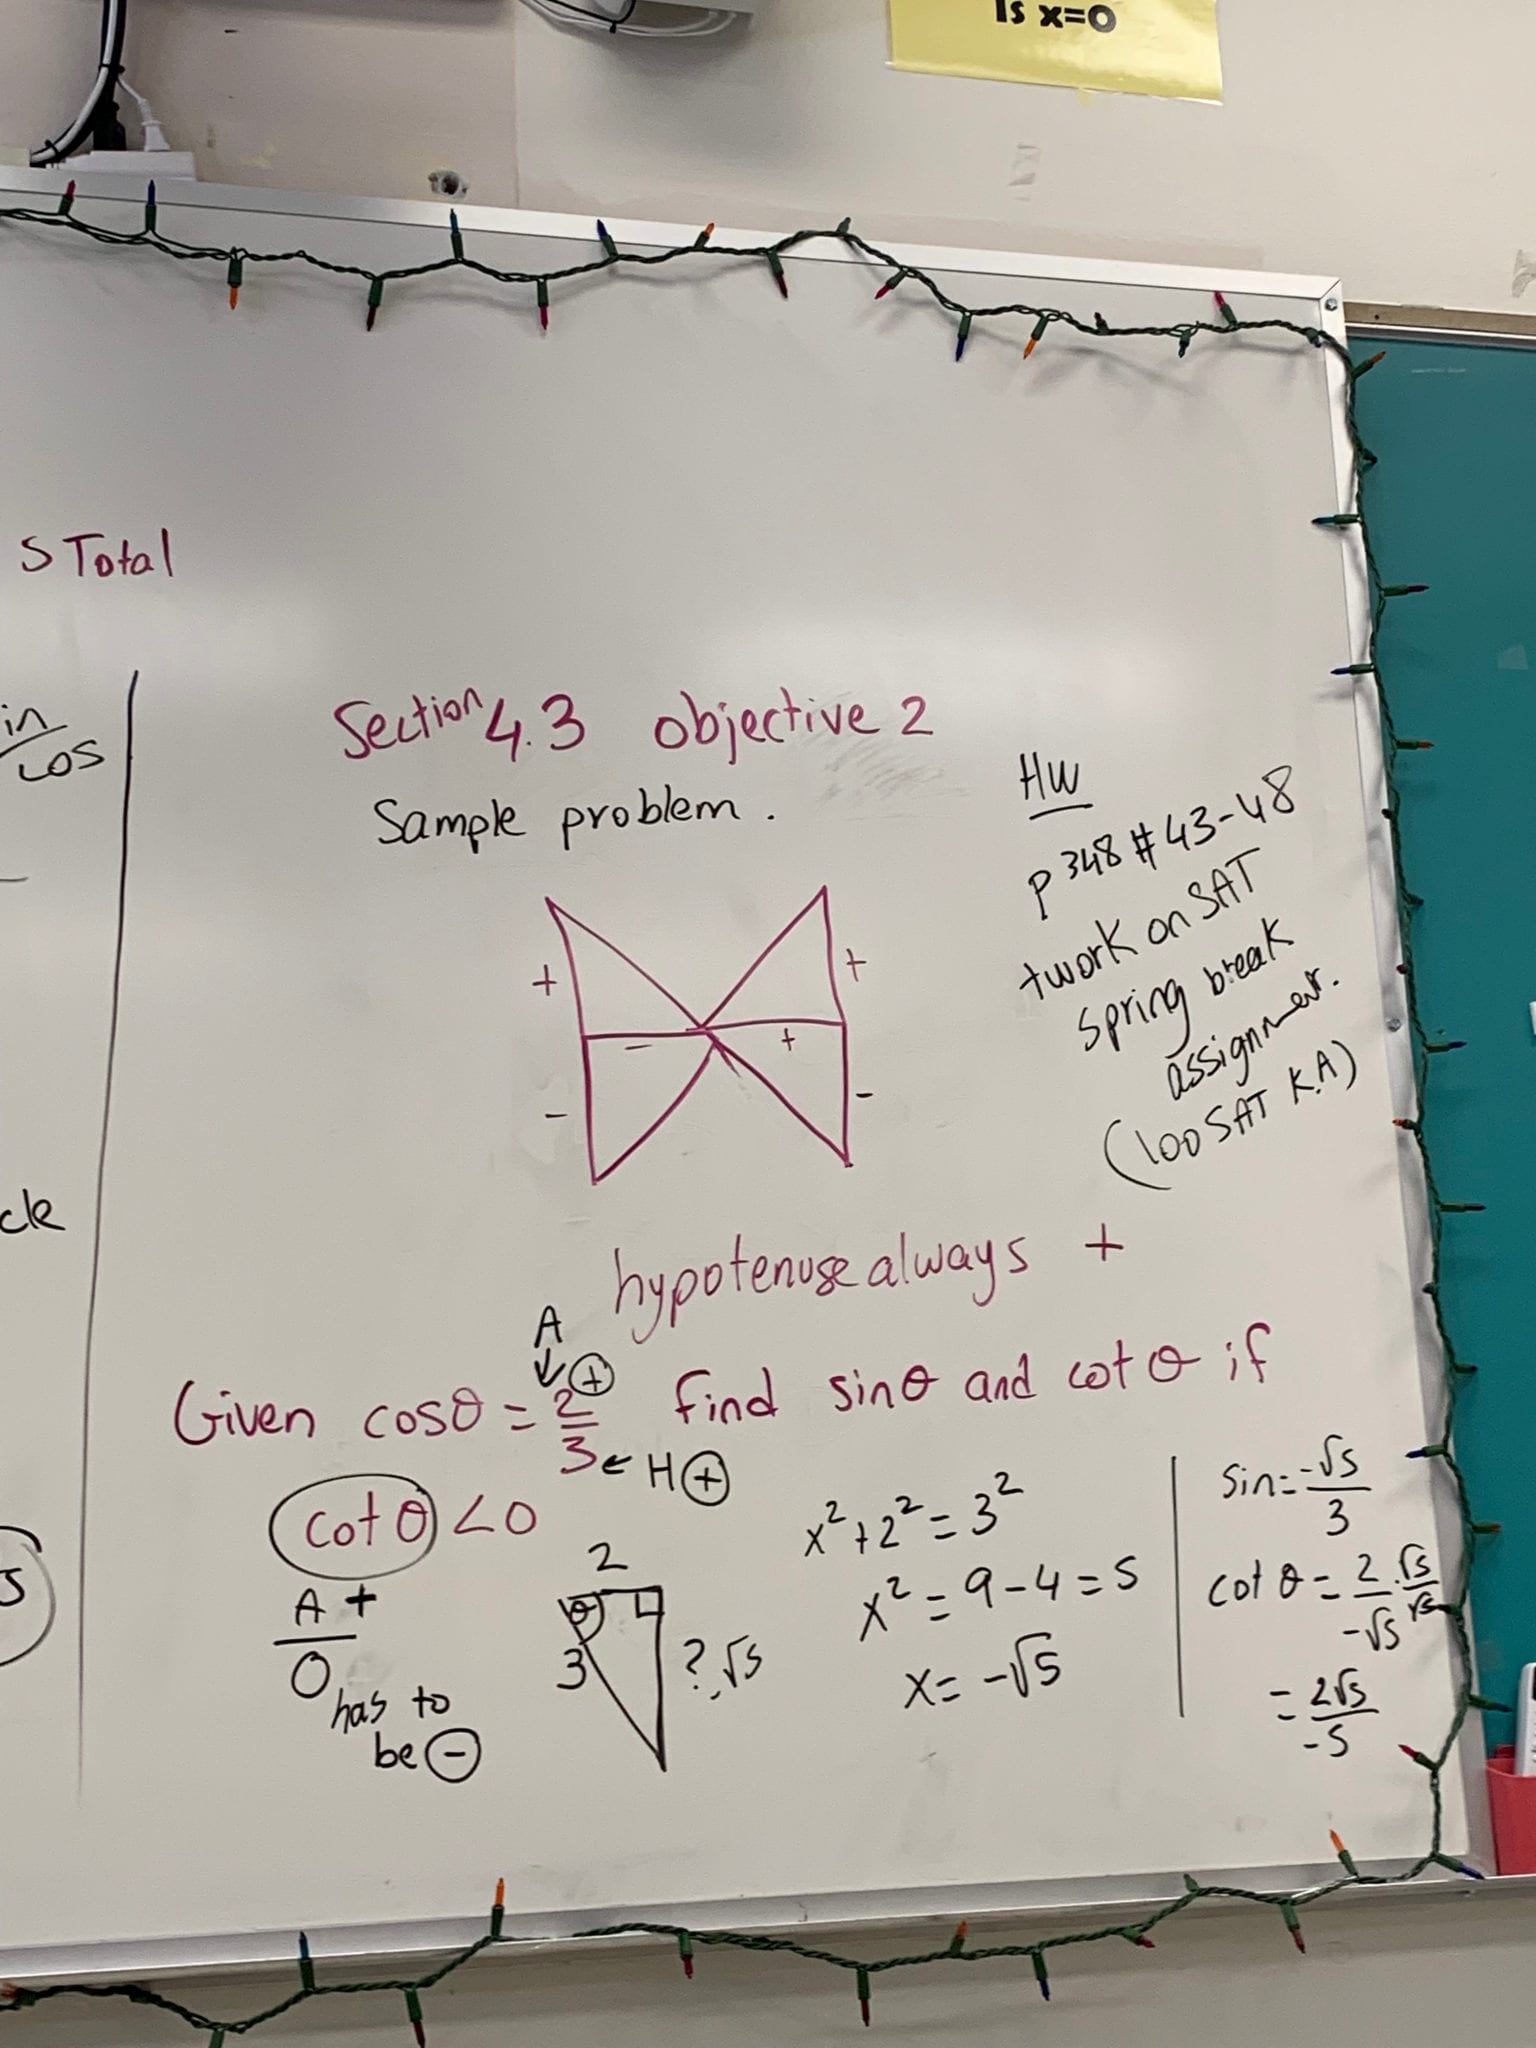 Is x=0
S Total
in
cos
ck
S
Section 4.3 objective 2
Sample problem.
+
+
-
+
-
-
HW
p 348 # 43-48
+work on SAT
spring break
assignment.
(100 SAT K.A)
hypotenuse always +
A
↓ +
Given cosθ = 2/3 find sinθ and cot θ if
← H +
cot θ < 0
A +
O
has to
be -
2
θ
3
? √5
x² + 2² = 3²
x² = 9 - 4 = 5
x = -√5
sin = -√5/3
cot θ = 2/-√5 · √5/√5
= 2√5/-5